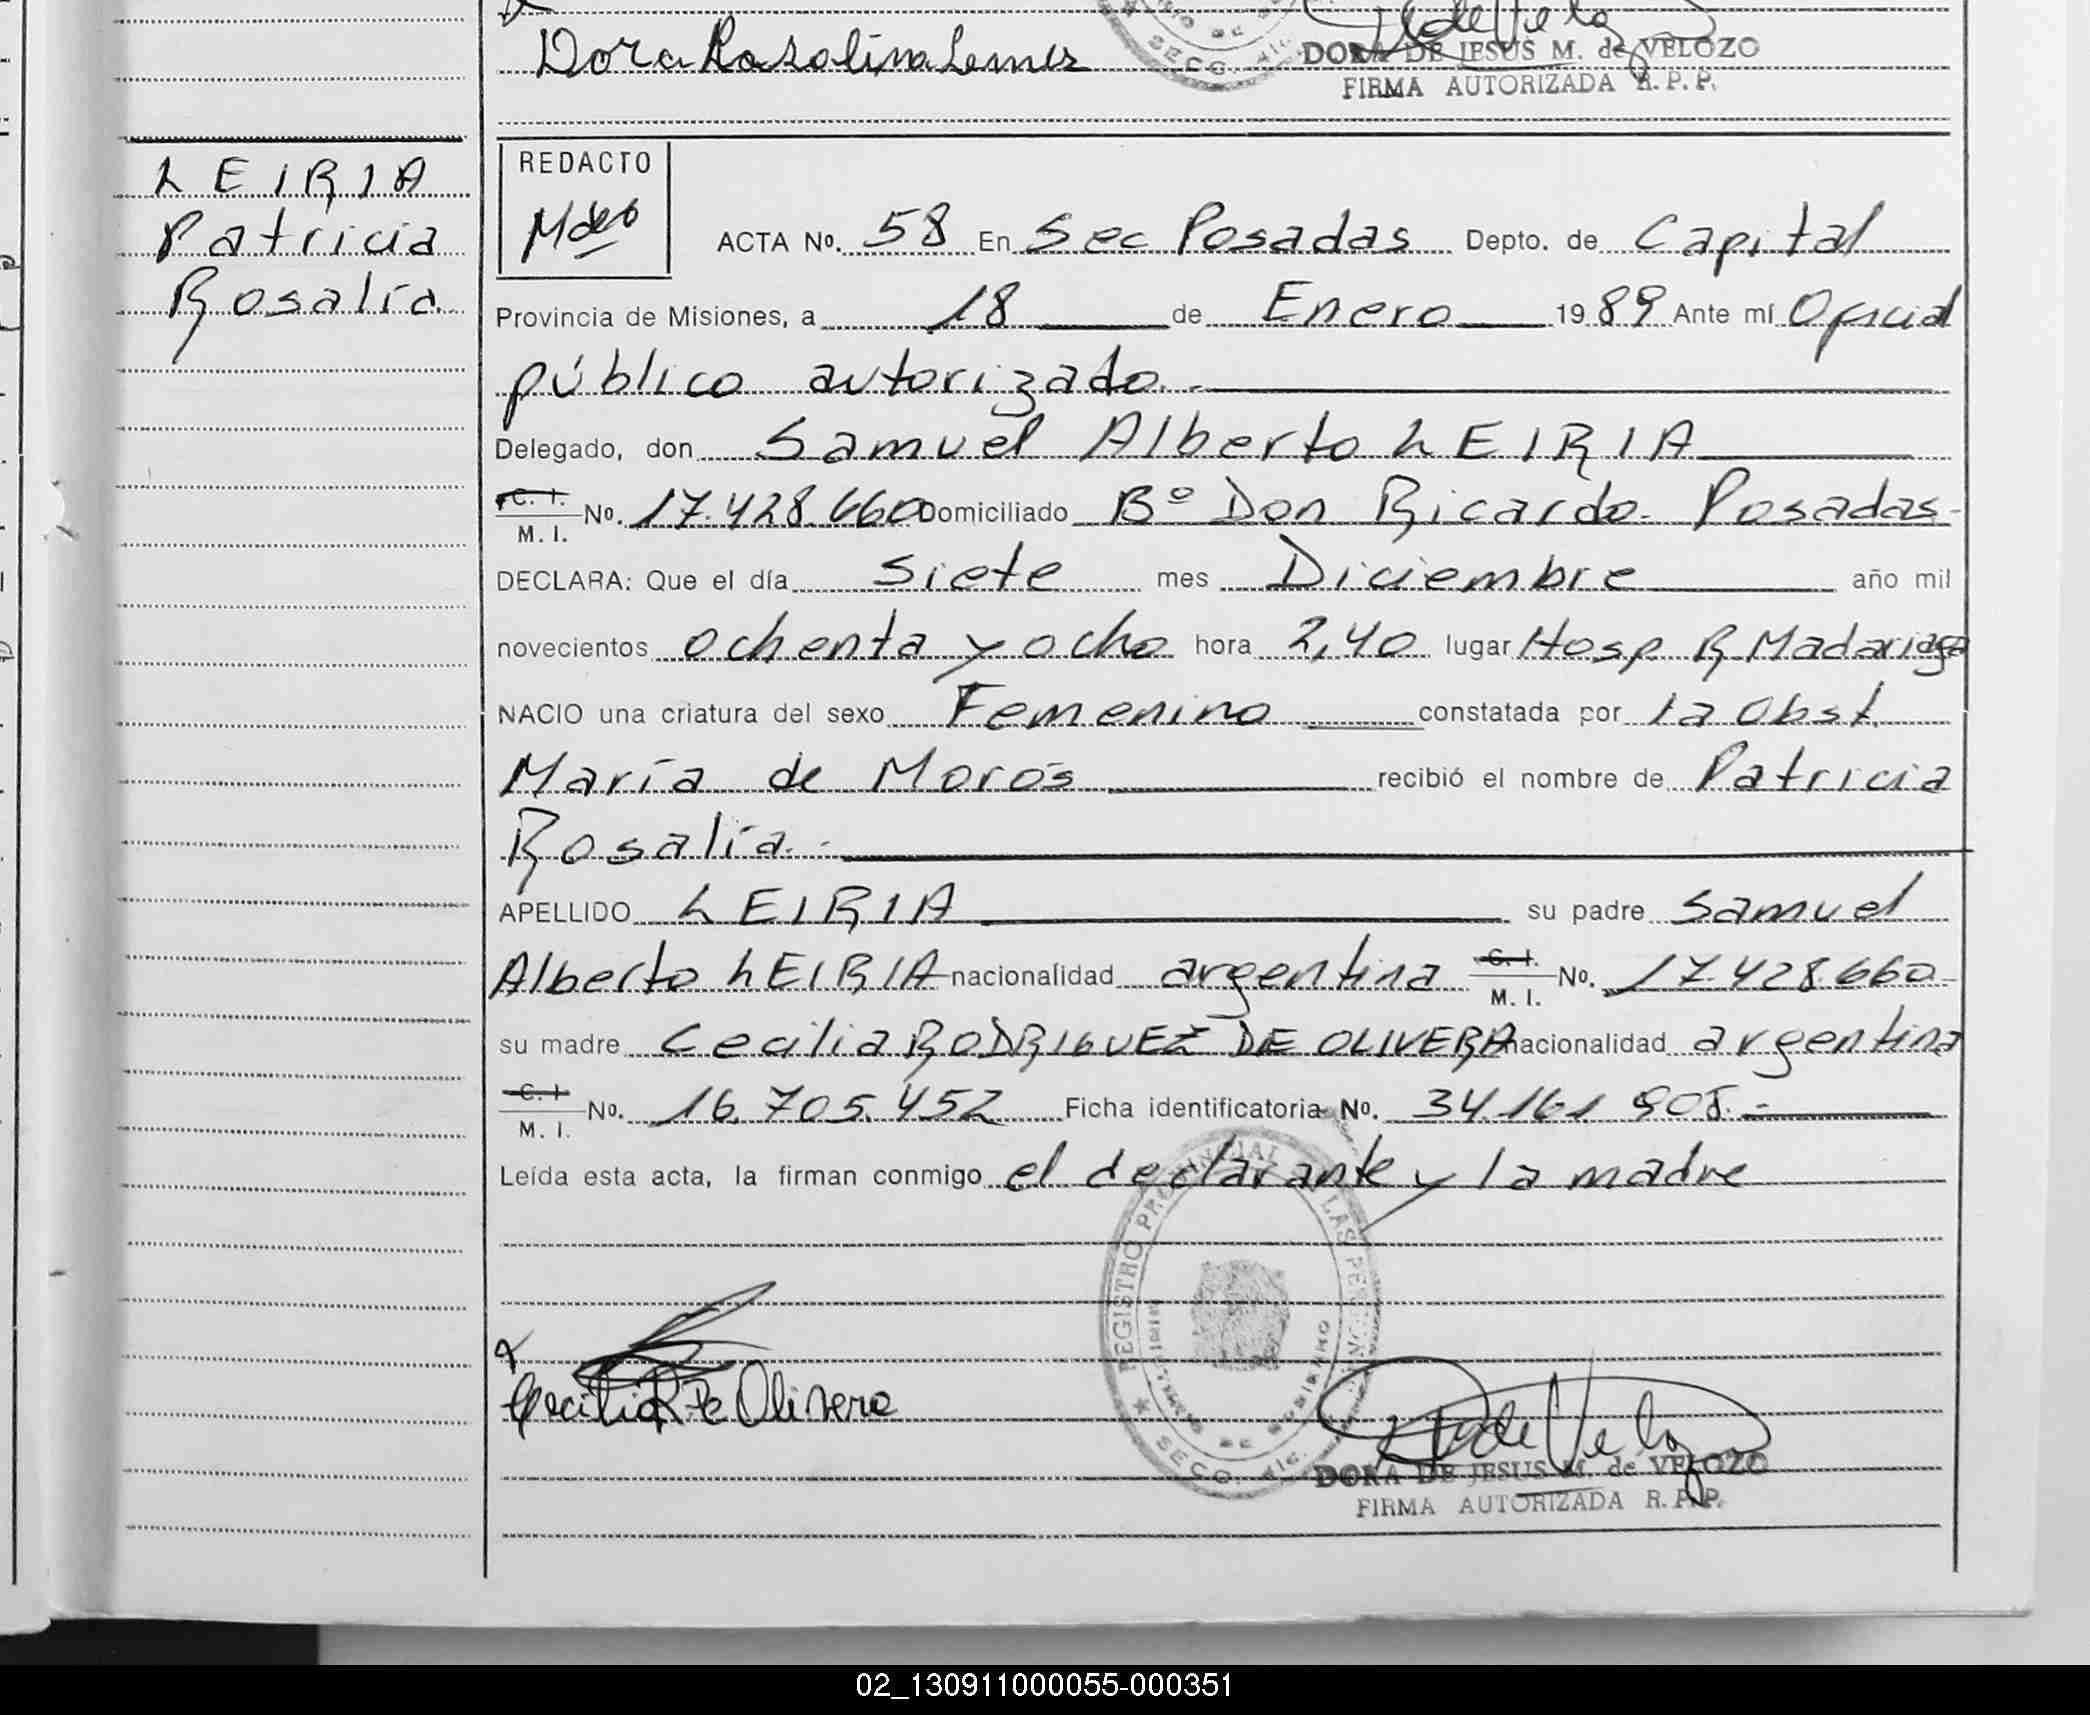 Dora Rosalina Lemes
DORA DE JESUS M. de VELOZO
FIRMA AUTORIZADA R.P.P.
LEIRIA
Patricia
Rosalía
REDACTO
ACTA No. 58 En Sec Posadas Depto. de Capital
Provincia de Misiones, a 18 de Enero 1989 Ante mí Oficial
público autorizado.-
Delegado, don Samuel Alberto LEIRIA
C. I. M. I. No. 17.428.660 Domiciliado Bº Don Ricardo- Posadas-
DECLARA: Que el día siete mes Diciembre año mil
novecientos ochenta y ocho hora 2,40 lugar Hosp R Madariaga
NACIO una criatura del sexo Femenino constatada por la Obst.
María de Morós recibió el nombre de Patricia
Rosalía.-
APELLIDO LEIRIA su padre Samuel
Alberto LEIRIA nacionalidad argentina C. I. M. I. No. 17.428.660-
su madre Cecilia RODRIGUEZ DE OLIVERA nacionalidad argentina
C. I. M. I. No. 16.705.452 Ficha identificatoria No. 34.161.908.-
Leída esta acta, la firman conmigo el declarante y la madre
REGISTRO PROVINCIAL DE LAS PERSONAS
SECC.
Cecilia R. De Olivera
DORA DE JESUS M. de VELOZO
FIRMA AUTORIZADA R.P.P.
02_130911000055-000351